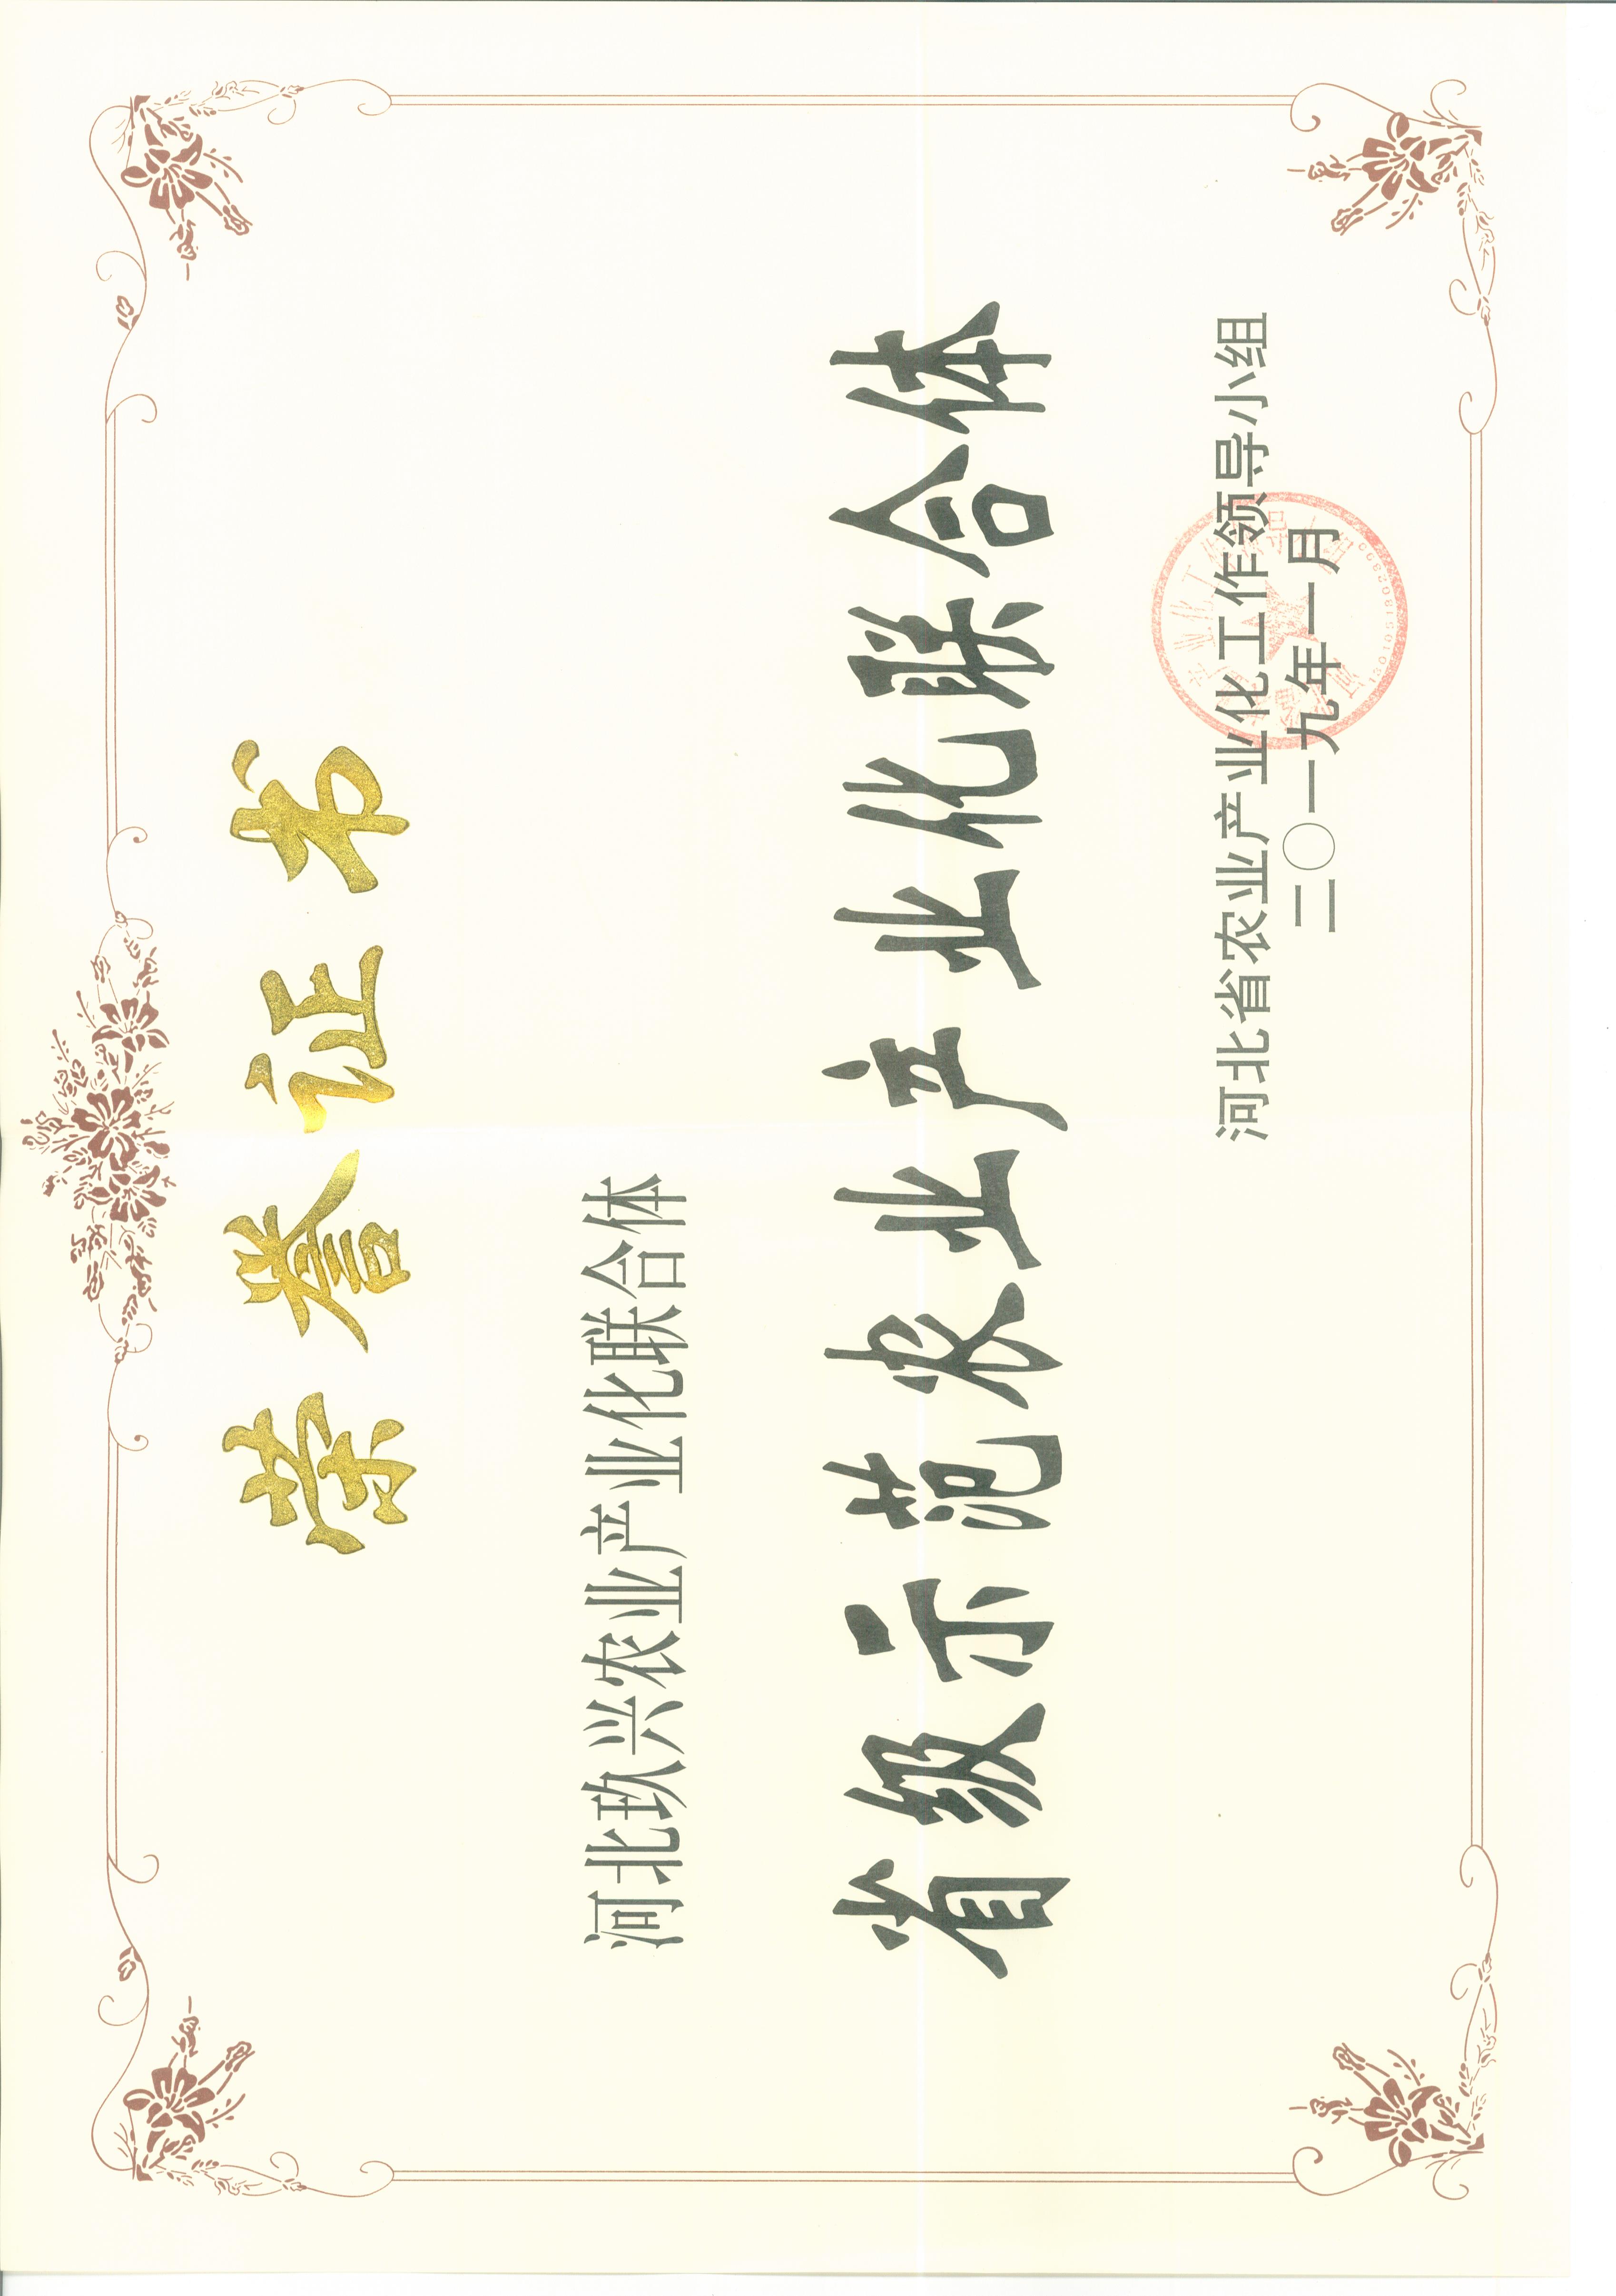 荣誉证书
河北玖兴农业产业化联合体
省级示范农业产业化联合体
河北省农业产业化工作领导小组
二〇一九年一月